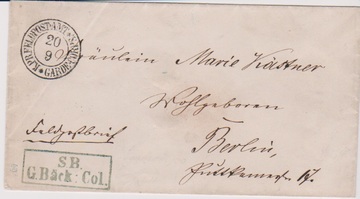 K.PR.FELDPOSTAMT
GARDE
20
9
Fräulein Marie Kästner
Wohlgeboren
Feldpostbrief
Berlin,
Puttkamerstr. 17.
S.B.
G.Bäck: Col.